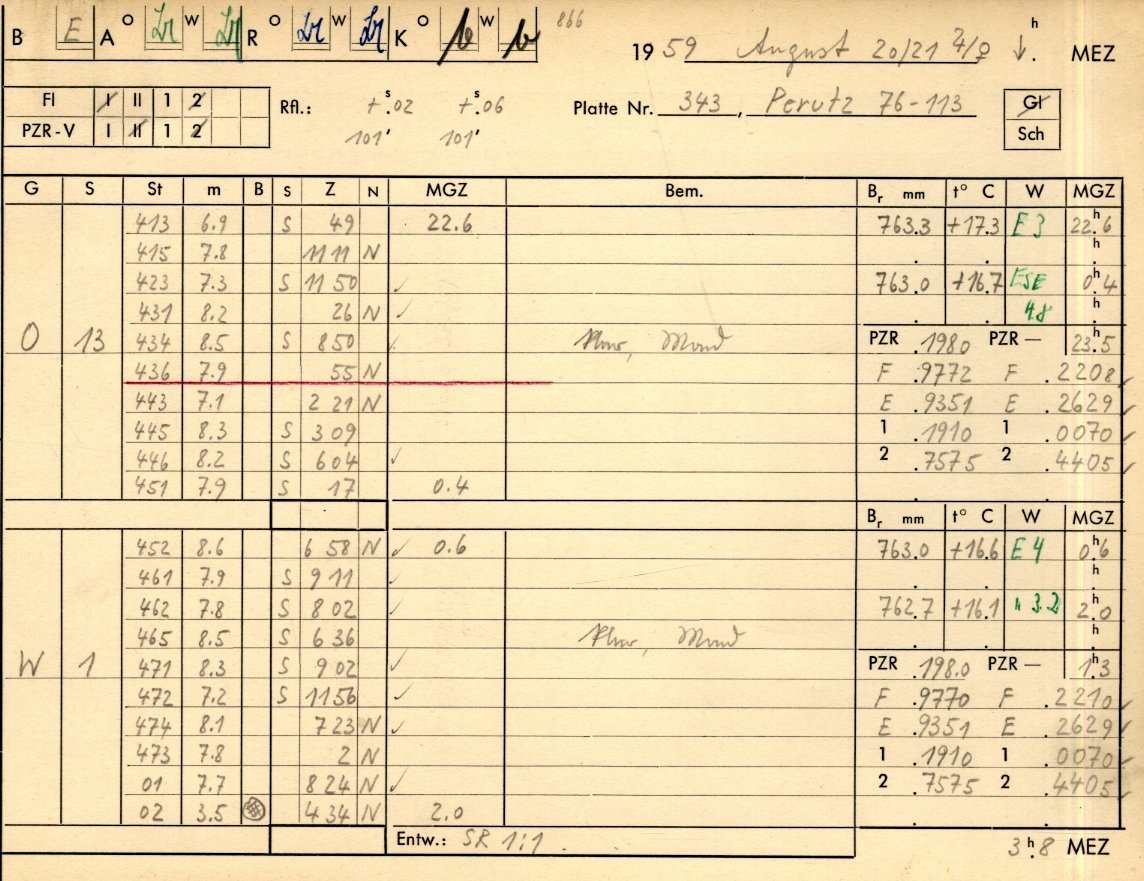 866
B E A O Lr W Lr R O Lr W Lr K O W
1959 August 20/21 ♃/♀ h . MEZ
FI I II 1 2
PZR-V I II 1 2
Rfl.: +.s02 +.s06
101' 101'
Platte Nr. 343, Perutz 76-113
Gl
Sch
G S St m B S Z N MGZ Bem. Br mm t° C W MGZ
413 6.9 S 49 22.6 763.3 +17.3 E 3 22.h6
415 7.8 11 11 N . . h.
423 7.3 S 11 50 ✓ 763.0 +16.7 ESE 0.h4
431 8.2 26 N ✓ . . 4.8 h.
O 13 434 8.5 S 8 50 ✓ Mond PZR .1980 PZR — 23.h5
436 7.9 55 N F .9772 F .2208 ✓
443 7.1 2 21 N E .9351 E .2629 ✓
445 8.3 S 3 09 1 .1910 1 .0070 ✓
446 8.2 S 6 04 ✓ 2 .7575 2 .4405 ✓
451 7.9 S 17 0.4 . .
Br mm t° C W MGZ
452 8.6 6 58 N ✓ 0.6 763.0 +16.6 E 4 0.h6
461 7.9 S 9 11 ✓ . . h.
462 7.8 S 8 02 ✓ 762.7 +16.1 " 3.2 2.h0
465 8.5 S 6 36 Mond . . h.
W 1 471 8.3 S 9 02 ✓ PZR .198.0 PZR — 1.h3
472 7.2 S 11 56 ✓ F .9770 F .2210 ✓
474 8.1 7 23 N ✓ E .9351 E .2629 ✓
473 7.8 2 N 1 .1910 1 .0070 ✓
01 7.7 8 24 N ✓ 2 .7575 2 .4405 ✓
02 3.5 4 34 N 2.0 . .
Entw.: SR 1:1 . 3.h8 MEZ